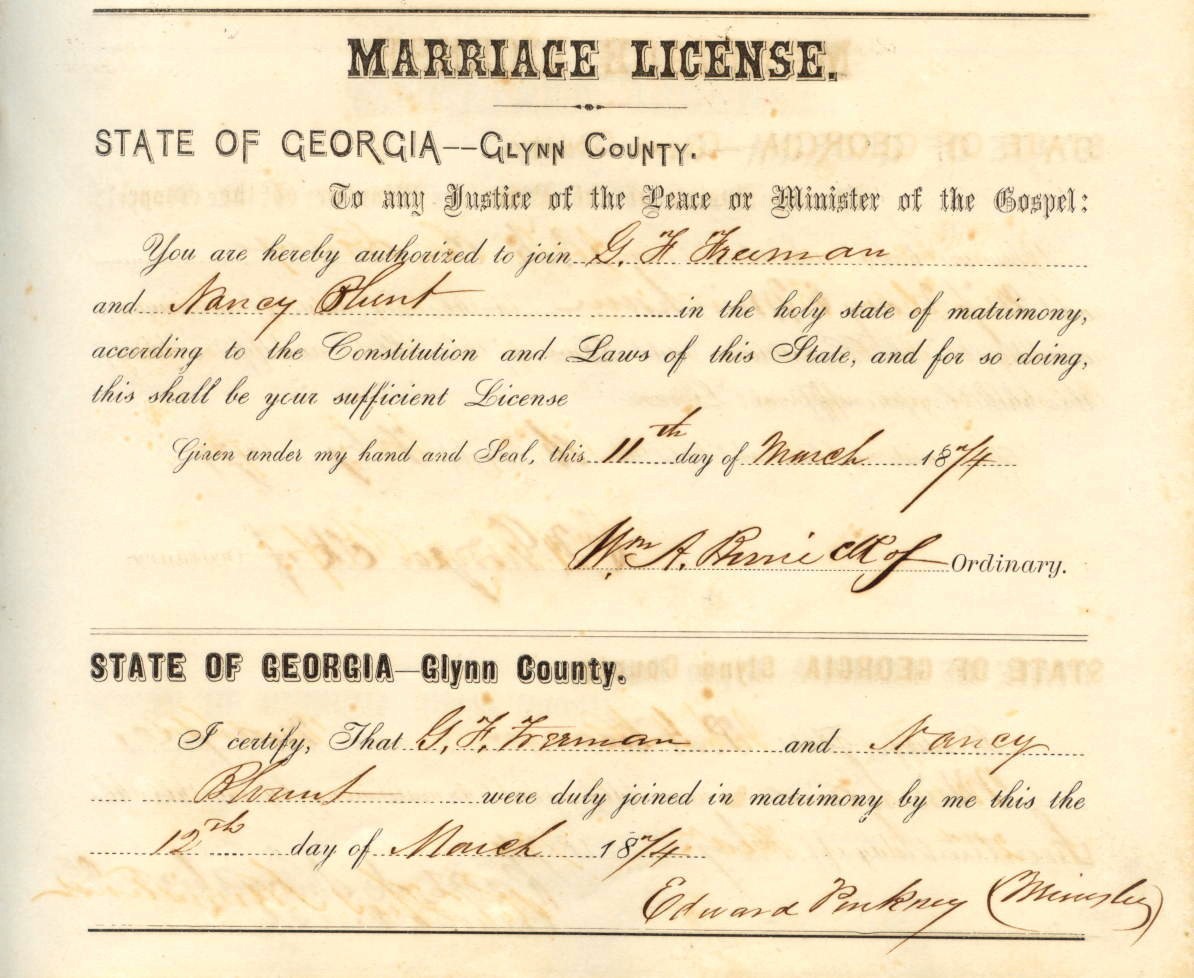 MARRIAGE LICENSE.
STATE OF GEORGIA--GLYNN COUNTY.
To any Justice of the Peace or Minister of the Gospel:
You are hereby authorized to join G. F Freeman
and Nancy Blunt in the holy state of matrimony,
according to the Constitution and Laws of this State, and for so doing,
this shall be your sufficient License
Given under my hand and Seal, this 11th day of March 1874
Wm A. Ordinary.
STATE OF GEORGIA—Glynn County.
I certify, That G. F. Freeman and Nancy
Blount were duly joined in matrimony by me this the
12th day of March 1874
Edward Pinkney (Minister)